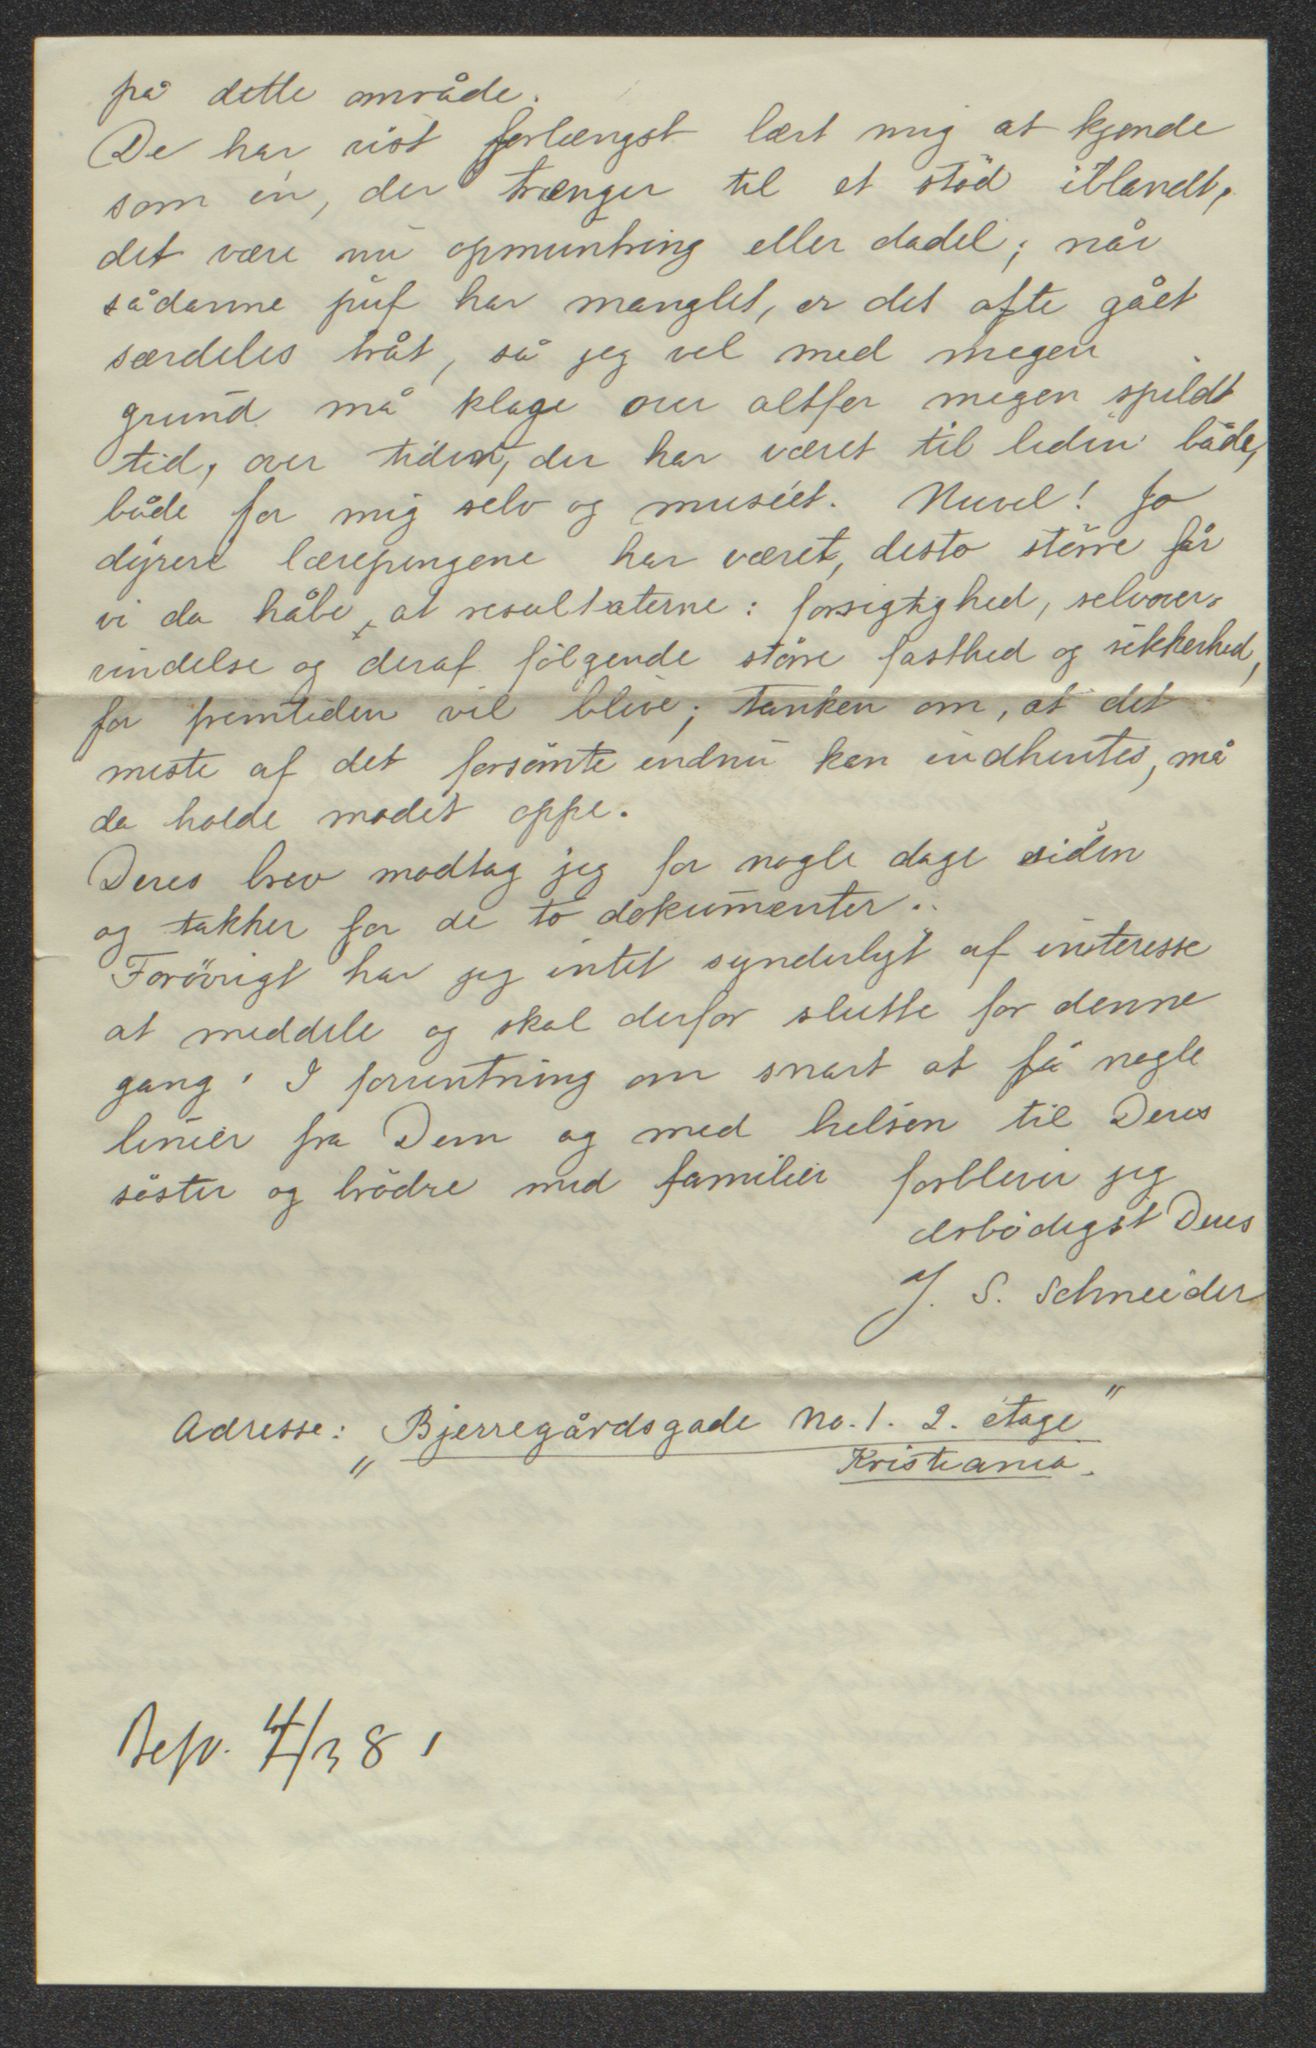 på dette område.
De har vist forlængst lært mig at kjende
som én, der trænger til et stöd iblandt,
det være nu opmuntring eller dadel; når
sådanne puf har manglet, er det ofte gået
særdeles tråt, så jeg vel med megen
grund må klage over altfor megen spildt
tid, over tiden, der har været til liden både,
både for mig selv og muséet. Nuvel! Jo
dyrere lærepengene har været, desto större får
vi da håbe, at resultaterne: forsigtighed, selvover-
vindelse og deraf fölgende större fasthed og sikkerhed,
for fremtiden vil blive; tanken om, at det
meste af det forsömte endnu kan indhentes, må
da holde modet oppe.
Deres brev modtog jeg for nogle dage siden
og takker for de to dokumenter.
Forövrigt har jeg intet synderligt af interesse
at meddele og skal derfor slutte for denne
gang. I forventning om snart at få nogle
linier fra Dem og med hilsen til Deres
söster og brödre med familier forbliver jeg
ærbödigst Deres
J. S. Schneider
Adresse: „Bjerregårdsgade No. 1. 2. etage"
Kristiania.
Besv. 4/3 81